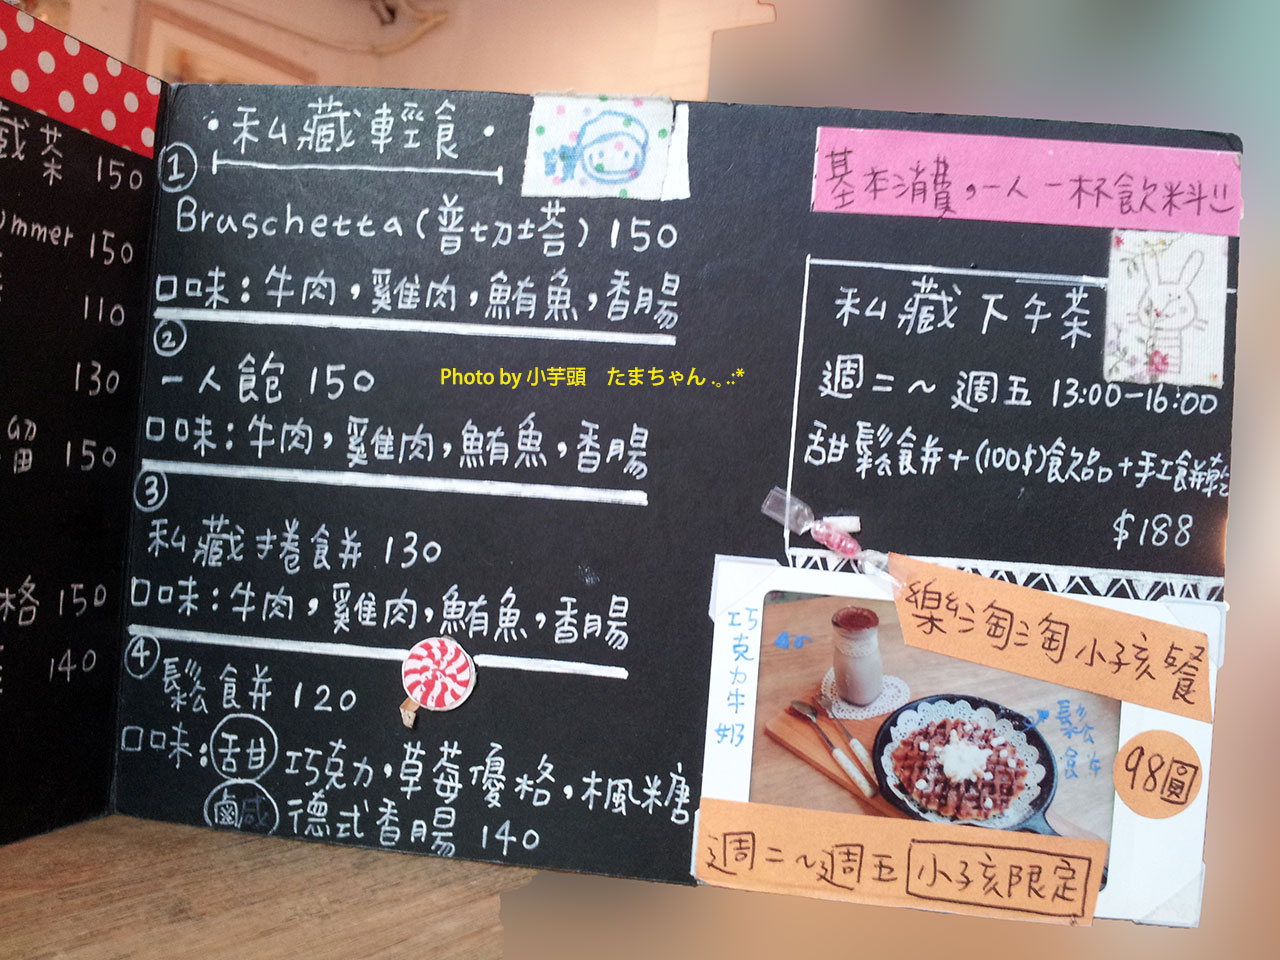 藏茶 150
ummer 150
110
130
150
格 150
140
•私藏輕食•
① Bruschetta(普切塔) 150
口味:牛肉,雞肉,鮪魚,香腸
② 一人飽 150
口味:牛肉,雞肉,鮪魚,香腸
③ 私藏捲餅 130
口味:牛肉,雞肉,鮪魚,香腸
④ 鬆餅 120
口味:甜 巧克力,草莓優格,楓糖
鹹 德式香腸 140
Photo by 小芋頭 たまちゃん .。.:*
基本消費,一人一杯飲料!!
私藏下午茶
週二~週五 13:00-16:00
甜鬆餅+(100$)飲品+手工餅乾
$188
樂淘淘小孩餐
巧克力牛奶
鬆餅
98圓
週二~週五 小孩限定